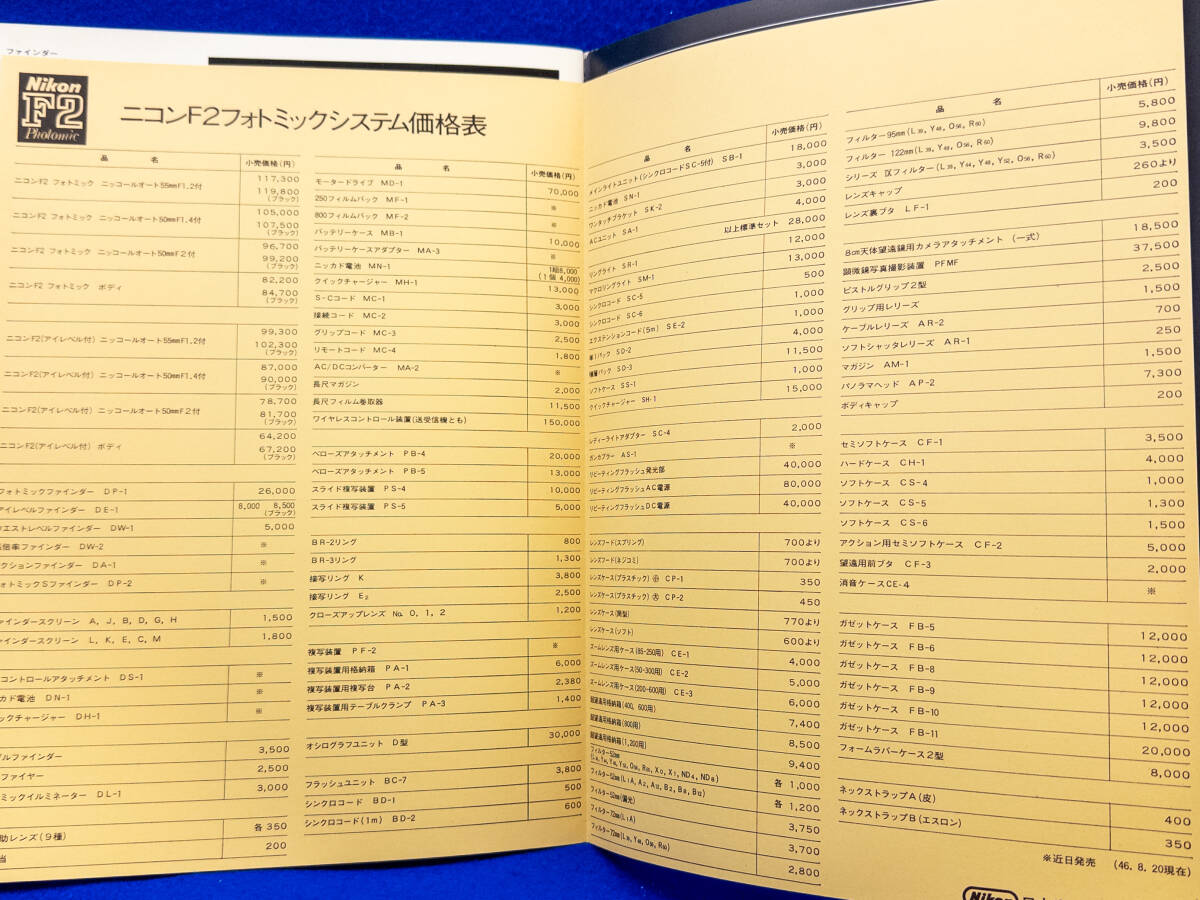 ファインダー
Nikon
F2
Photomic
ニコンF2フォトミックシステム価格表
品 名 小売価格(円)
ニコンF2 フォトミック ニッコールオート55mmF1.2付 117,300
119,800
(ブラック)
ニコンF2 フォトミック ニッコールオート50mmF1.4付 105,000
107,500
(ブラック)
ニコンF2 フォトミック ニッコールオート50mmF2付 96,700
99,200
(ブラック)
ニコンF2 フォトミック ボディ 82,200
84,700
(ブラック)
ニコンF2(アイレベル付) ニッコールオート55mmF1.2付 99,300
102,300
(ブラック)
ニコンF2(アイレベル付) ニッコールオート50mmF1.4付 87,000
90,000
(ブラック)
ニコンF2(アイレベル付) ニッコールオート50mmF2付 78,700
81,700
(ブラック)
ニコンF2(アイレベル付) ボディ 64,200
67,200
(ブラック)
フォトミックファインダー DP-1 26,000
アイレベルファインダー DE-1 8,000 8,500
(ブラック)
ウエストレベルファインダー DW-1 5,000
倍率ファインダー DW-2 ※
クションファインダー DA-1 ※
ォトミックSファインダー DP-2 ※
ァインダースクリーン A, J, B, D, G, H 1,500
ァインダースクリーン L, K, E, C, M 1,800
コントロールアタッチメント DS-1 ※
カド電池 DN-1 ※
ックチャージャー DH-1 ※
ルファインダー 3,500
ファイヤー 2,500
ミックイルミネーター DL-1 3,000
助レンズ(9種) 各350
当 200
品 名 小売価格(円)
モータードライブ MD-1 70,000
250フィルムバック MF-1 ※
800フィルムバック MF-2 ※
バッテリーケース MB-1 10,000
バッテリーケースアダプター MA-3 ※
ニッカド電池 MN-1 1組8,000
(1個 4,000)
クイックチャージャー MH-1 13,000
S-Cコード MC-1 3,000
接続コード MC-2 3,000
グリップコード MC-3 2,500
リモートコード MC-4 1,800
AC/DCコンバーター MA-2 ※
長尺マガジン 2,000
長尺フィルム巻取器 11,500
ワイヤレスコントロール装置(送受信機とも) 150,000
ベローズアタッチメント PB-4 20,000
ベローズアタッチメント PB-5 13,000
スライド複写装置 PS-4 10,000
スライド複写装置 PS-5 5,000
BR-2リング 800
BR-3リング 1,300
接写リング K 3,800
接写リング E2 2,500
クローズアップレンズ No. 0, 1, 2 1,200
複写装置 PF-2 ※
複写装置用格納箱 PA-1 6,000
複写装置用複写台 PA-2 2,380
複写装置用テーブルクランプ PA-3 1,400
オシログラフユニット D型 30,000
フラッシュユニット BC-7 3,800
シンクロコード BD-1 500
シンクロコード(1m) BD-2 600
品 名 小売価格(円)
メインライトユニット(シンクロコードSC-5付) SB-1 18,000
ニッカド電池 SN-1 3,000
ワンタッチブラケット SK-2 3,000
ACユニット SA-1 4,000
以上標準セット 28,000
リングライト SR-1 12,000
マクロリングライト SM-1 13,000
シンクロコード SC-5 500
シンクロコード SC-6 1,000
エクステンションコード(5m) SE-2 1,000
単1パック SD-2 4,000
積層パック SD-3 11,500
ソフトケース SS-1 1,000
クイックチャージャー SH-1 15,000
レディーライトアダプター SC-4 2,000
ガンカプラー AS-1 ※
リピーティングフラッシュ発光部 40,000
リピーティングフラッシュAC電源 80,000
リピーティングフラッシュDC電源 40,000
レンズフード(スプリング) 700より
レンズフード(ネジコミ) 700より
レンズケース(プラスチック) CP-1 350
レンズケース(プラスチック) CP-2 450
レンズケース(筒型) 770より
レンズケース(ソフト) 600より
ズームレンズ用ケース(85-250用) CE-1 4,000
ズームレンズ用ケース(50-300用) CE-2 5,000
ズームレンズ用ケース(200-600用) CE-3 6,000
超望遠用格納箱(400, 600用) 7,400
超望遠用格納箱(800用) 8,500
超望遠用格納箱(1,200用) 9,400
フィルター52mm 各 1,000
フィルター52mm(L1A, A2, A12, B2, B8, B12) 各 1,200
フィルター52mm(偏光) 3,750
フィルター72mm(L1A) 3,700
フィルター72mm(L39, Y48, O56, R60) 2,800
品 名 小売価格(円)
フィルター95mm(L39, Y48, O56, R60) 5,800
フィルター 122mm(L39, Y48, O56, R60) 9,800
シリーズ Ⅸフィルター(L39, Y44, Y48, Y52, O56, R60) 3,500
レンズキャップ 260より
レンズ裏ブタ LF-1 200
8cm天体望遠鏡用カメラアタッチメント (一式) 18,500
顕微鏡写真撮影装置 PFMF 37,500
ピストルグリップ2型 2,500
グリップ用レリーズ 1,500
ケーブルレリーズ AR-2 700
ソフトシャッタレリーズ AR-1 250
マガジン AM-1 1,500
パノラマヘッド AP-2 7,300
ボディキャップ 200
セミソフトケース CF-1 3,500
ハードケース CH-1 4,000
ソフトケース CS-4 1,000
ソフトケース CS-5 1,300
ソフトケース CS-6 1,500
アクション用セミソフトケース CF-2 5,000
望遠用前ブタ CF-3 2,000
消音ケースCE-4 ※
ガゼットケース FB-5 12,000
ガゼットケース FB-6 12,000
ガゼットケース FB-8 12,000
ガゼットケース FB-9 12,000
ガゼットケース FB-10 12,000
ガゼットケース FB-11 20,000
フォームラバーケース2型 8,000
ネックストラップA(皮) 400
ネックストラップB(エスロン) 350
※近日発売 (46. 8. 20現在)
Nikon